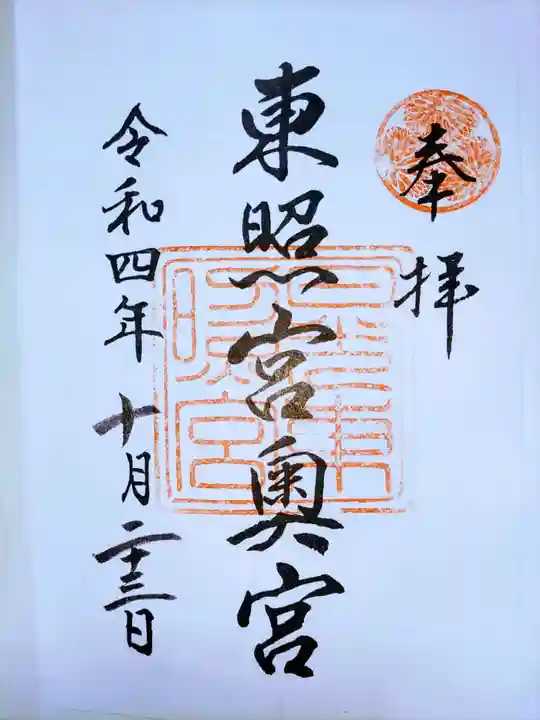 奉拝
東照宮奥宮
令和四年十月二十三日